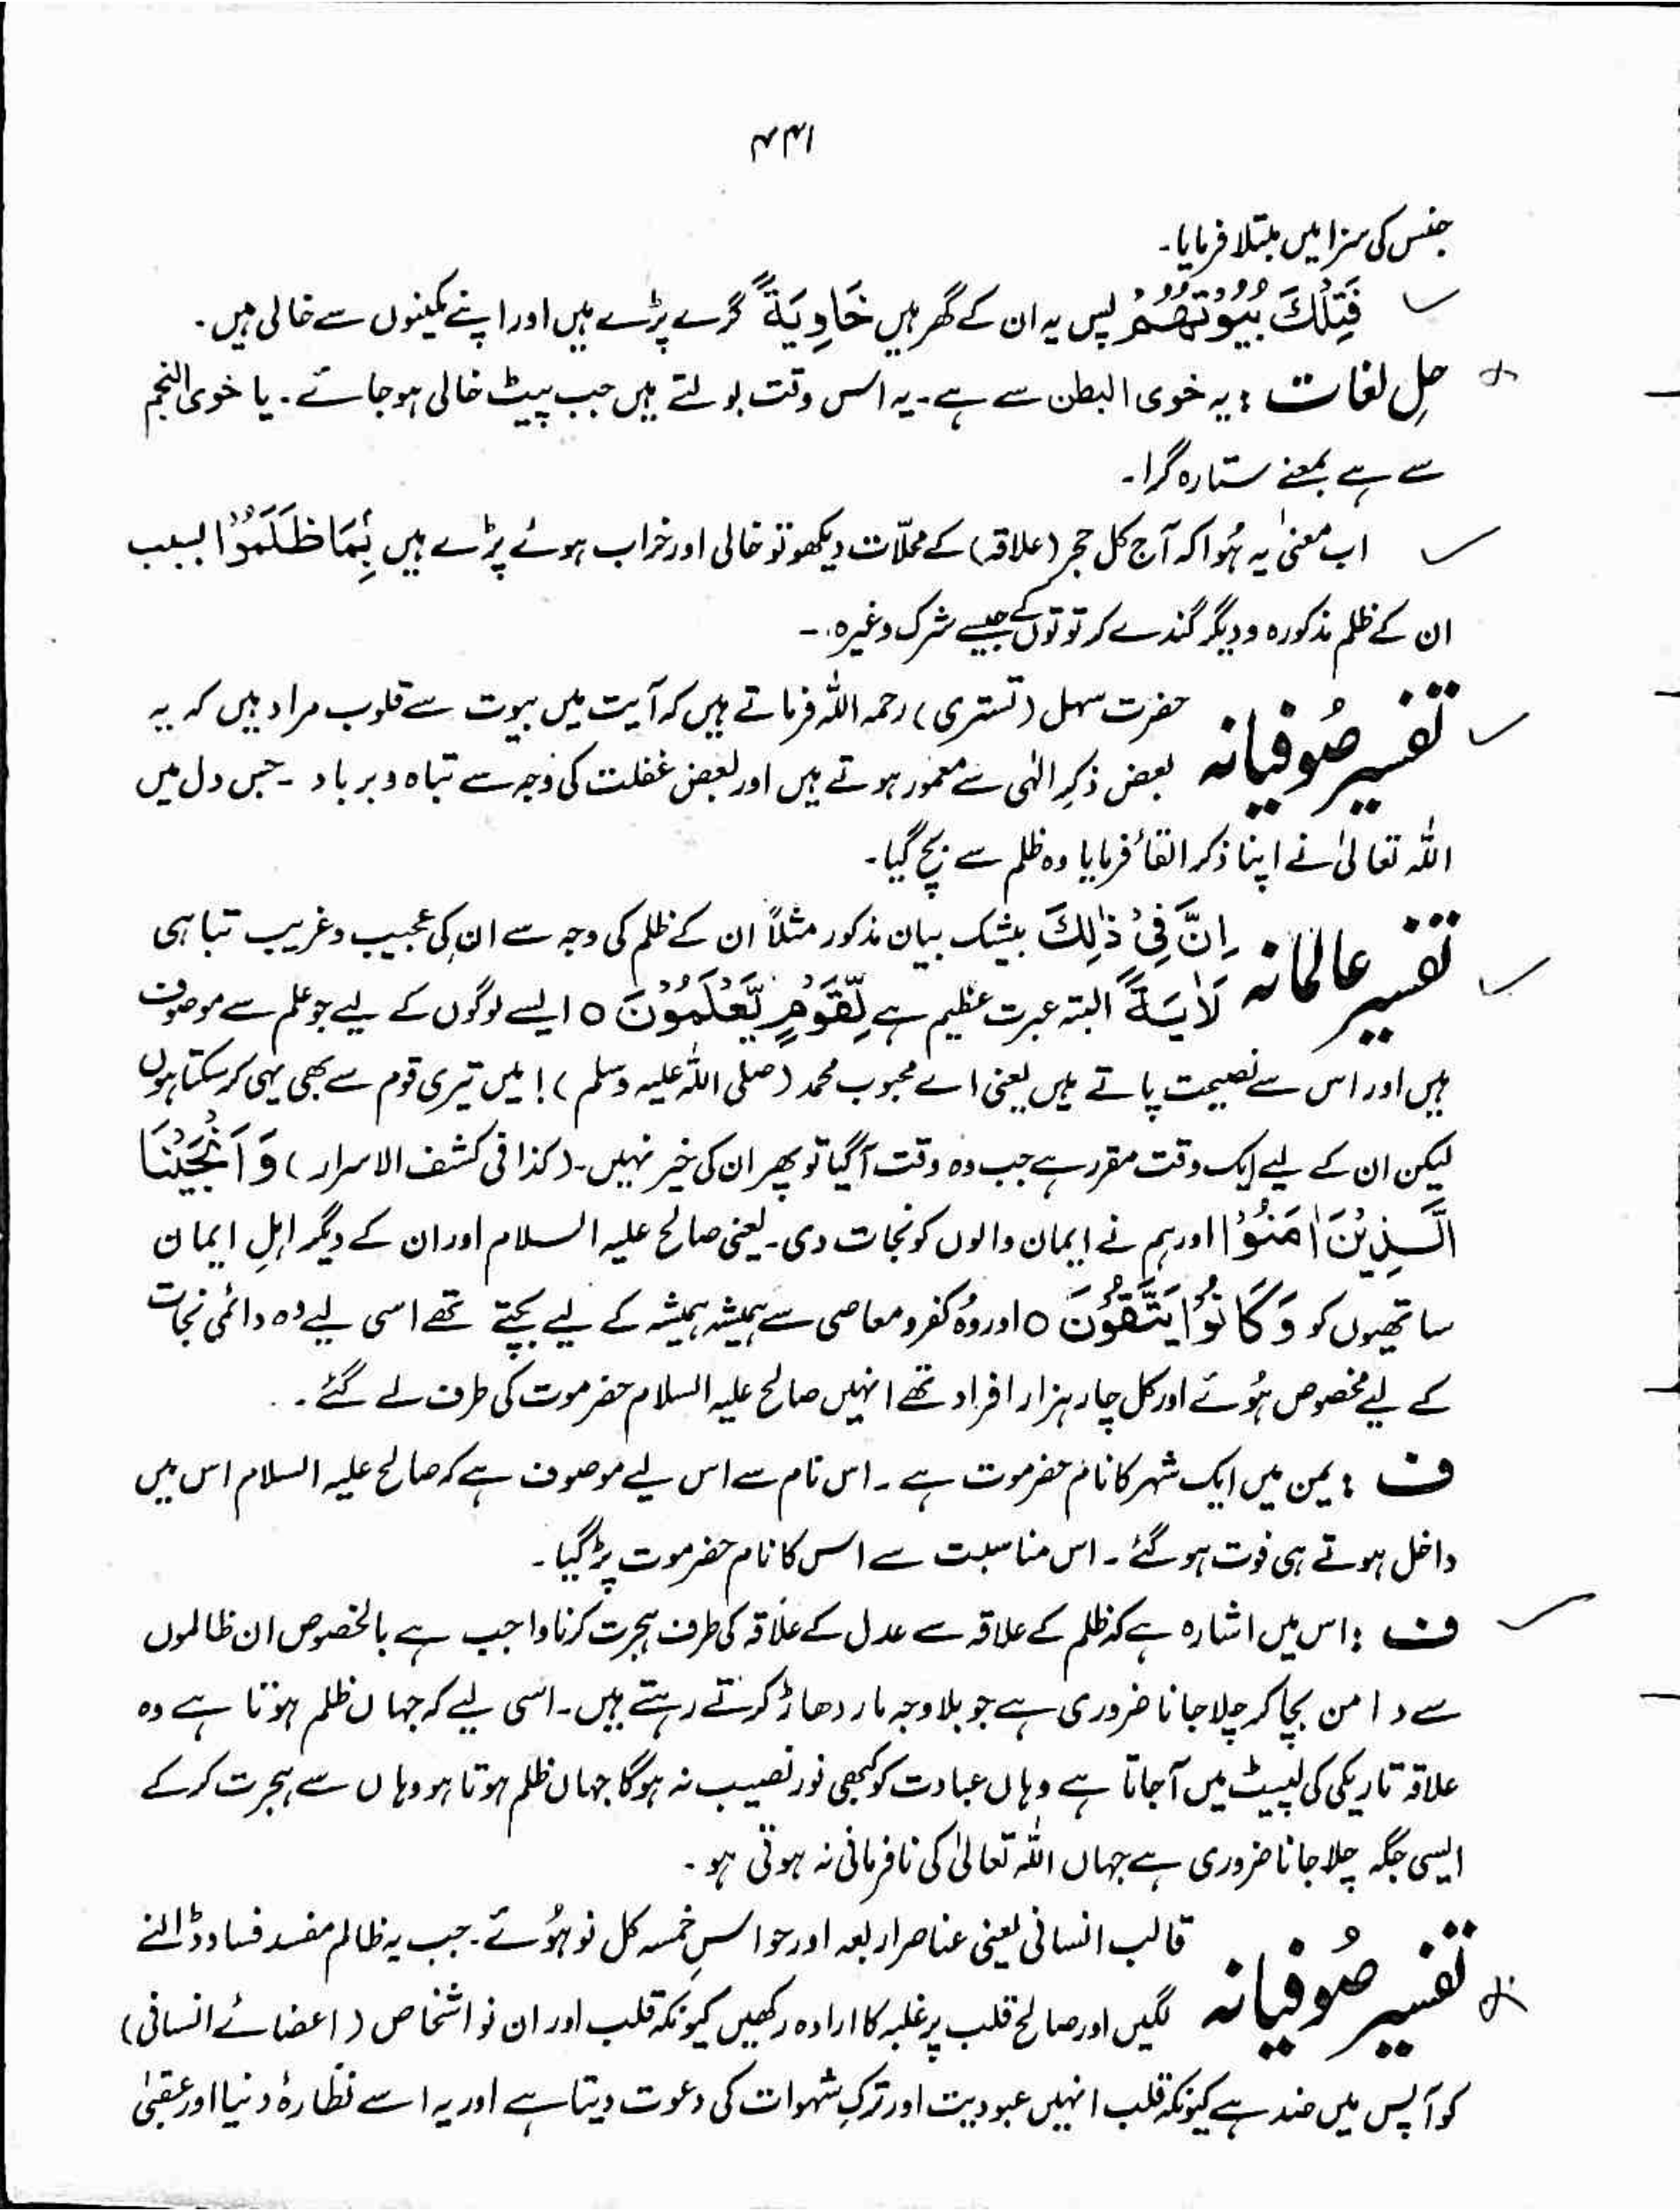 ۴۴۱
جنس کی سزا میں مبتلا فرمایا۔
فَتِلْكَ بُيُوْتُهُمْ پس یہ ان کے گھر ہیں خَاوِيَةً گرے پڑے ہیں اور اپنے مکینوں سے خالی ہیں۔
حلِ لغات : یہ خوی البطن سے ہے۔ یہ اس وقت بولتے ہیں جب پیٹ خالی ہو جائے۔ یا خوی النجم
سے ہے بمعنے ستارہ گرا۔
اب معنیٰ یہ ہُوا کہ آج کل حجر (علاقہ) کے محلّات دیکھو تو خالی اور خراب ہوئے پڑے ہیں بِمَا ظَلَمُوْا بسبب
ان کے ظلم مذکورہ و دیگر گندے کرتوتوں کے جیسے شرک وغیرہ۔
تفسیر صُوفیانہ حضرت سہل (تستری) رحمہ اللہ فرماتے ہیں کہ آیت میں بیوت سے قلوب مراد ہیں کہ یہ
بعض ذکرِ الٰہی سے معمور ہوتے ہیں اور بعض غفلت کی وجہ سے تباہ و برباد ۔ جس دل میں
اللہ تعالیٰ نے اپنا ذکر القأ فرمایا وہ ظلم سے بچ گیا۔
تفسیر عالمانہ اِنَّ فِیْ ذٰلِكَ بیشک بیان مذکور مثلاً ان کے ظلم کی وجہ سے ان کی عجیب و غریب تباہی
لَاٰيَةً البتہ عبرت عظیم ہے لِّقَوْمٍ يَّعْلَمُوْنَ ٥ ایسے لوگوں کے لیے جو علم سے موصوف
ہیں اور اس سے نصیحت پاتے ہیں یعنی اے محبوب محمد (صلی اللہ علیہ وسلم)! میں تیری قوم سے بھی یہی کر سکتا ہوں
لیکن ان کے لیے ایک وقت مقرر ہے جب وہ وقت آگیا تو پھر ان کی خیر نہیں۔ (کذا فی کشف الاسرار) وَ اَنْجَيْنَا
الَّذِيْنَ اٰمَنُوْا اور ہم نے ایمان والوں کو نجات دی۔ یعنی صالح علیہ السلام اور ان کے دیگر اہلِ ایمان
ساتھیوں کو وَ كَانُوْا يَتَّقُوْنَ ٥ اور وُہ کفر و معاصی سے ہمیشہ ہمیشہ کے لیے بچتے تھے اسی لیے وہ دائمی نجات
کے لیے مخصوص ہُوئے اور کل چار ہزار افراد تھے انہیں صالح علیہ السلام حضرموت کی طرف لے گئے۔
ف : یمن میں ایک شہر کا نام حضرموت ہے ۔ اس نام سے اس لیے موصوف ہے کہ صالح علیہ السلام اس میں
داخل ہوتے ہی فوت ہو گئے ۔ اس مناسبت سے اس کا نام حضرموت پڑ گیا۔
ف : اس میں اشارہ ہے کہ ظلم کے علاقہ سے عدل کے علاقہ کی طرف ہجرت کرنا واجب ہے بالخصوص ان ظالموں
سے دامن بچا کر چلا جانا ضروری ہے جو بلا وجہ مار دھاڑ کرتے رہتے ہیں۔ اسی لیے کہ جہاں ظلم ہوتا ہے وہ
علاقہ تاریکی کی لپیٹ میں آجاتا ہے وہاں عبادت کو کبھی نور نصیب نہ ہوگا جہاں ظلم ہوتا ہو وہاں سے ہجرت کر کے
ایسی جگہ چلا جانا ضروری ہے جہاں اللہ تعالیٰ کی نافرمانی نہ ہوتی ہو۔
تفسیر صُوفیانہ قالب انسانی یعنی عناصر اربعہ اور حواسِ خمسہ کل نو ہُوئے۔ جب یہ ظالم مفسد فساد ڈالنے
لگیں اور صالح قلب پر غلبہ کا ارادہ رکھیں کیونکہ قلب اور ان نو اشخاص (اعضائے انسانی)
کو آپس میں ضد ہے کیونکہ قلب انہیں عبودیت اور ترکِ شہوات کی دعوت دیتا ہے اور یہ اسے نظارۂ دنیا اور عقبیٰ